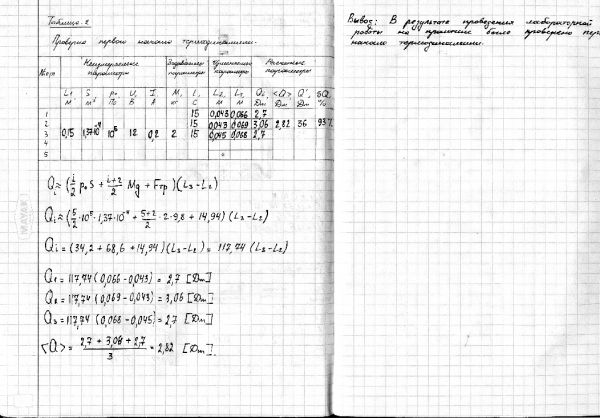 Таблица 2
Проверка первого начала термодинамики.
№оп Неизменяемые параметры Задаваемые параметры Измеряемые параметры Расчетные параметры
L₁ м S м² p₀ Па U, В I А M, кг t, С L₂, м L₃, м Qᵢ, Дж <Q> Дж Q', Дж δQ %
1 15 0,043 0,066 2,7
2 0,15 1,37·10⁻⁴ 10⁵ 12 0,2 2 15 0,043 0,069 3,06 2,82 36 93%
3 15 0,045 0,068 2,7
4
5
Qᵢ ≈ (i/2 p₀S + (i+2)/2 Mg + Fтр)(L₃ - L₂)
Qᵢ ≈ (5/2 · 10⁵ · 1,37·10⁻⁴ + (5+2)/2 · 2 · 9,8 + 14,94)(L₃ - L₂)
Qᵢ = (34,2 + 68,6 + 14,94)(L₃ - L₂) = 117,74 (L₃ - L₂)
Q₁ = 117,74 (0,066 - 0,043) = 2,7 [Дж]
Q₂ = 117,74 (0,069 - 0,043) = 3,06 [Дж]
Q₃ = 117,74 (0,068 - 0,045) = 2,7 [Дж]
<Q> = (2,7 + 3,06 + 2,7)/3 = 2,82 [Дж].
Вывод: В результате проведения лабораторной
работы на практике было проверено пер
начало термодинамики.
MAYAK